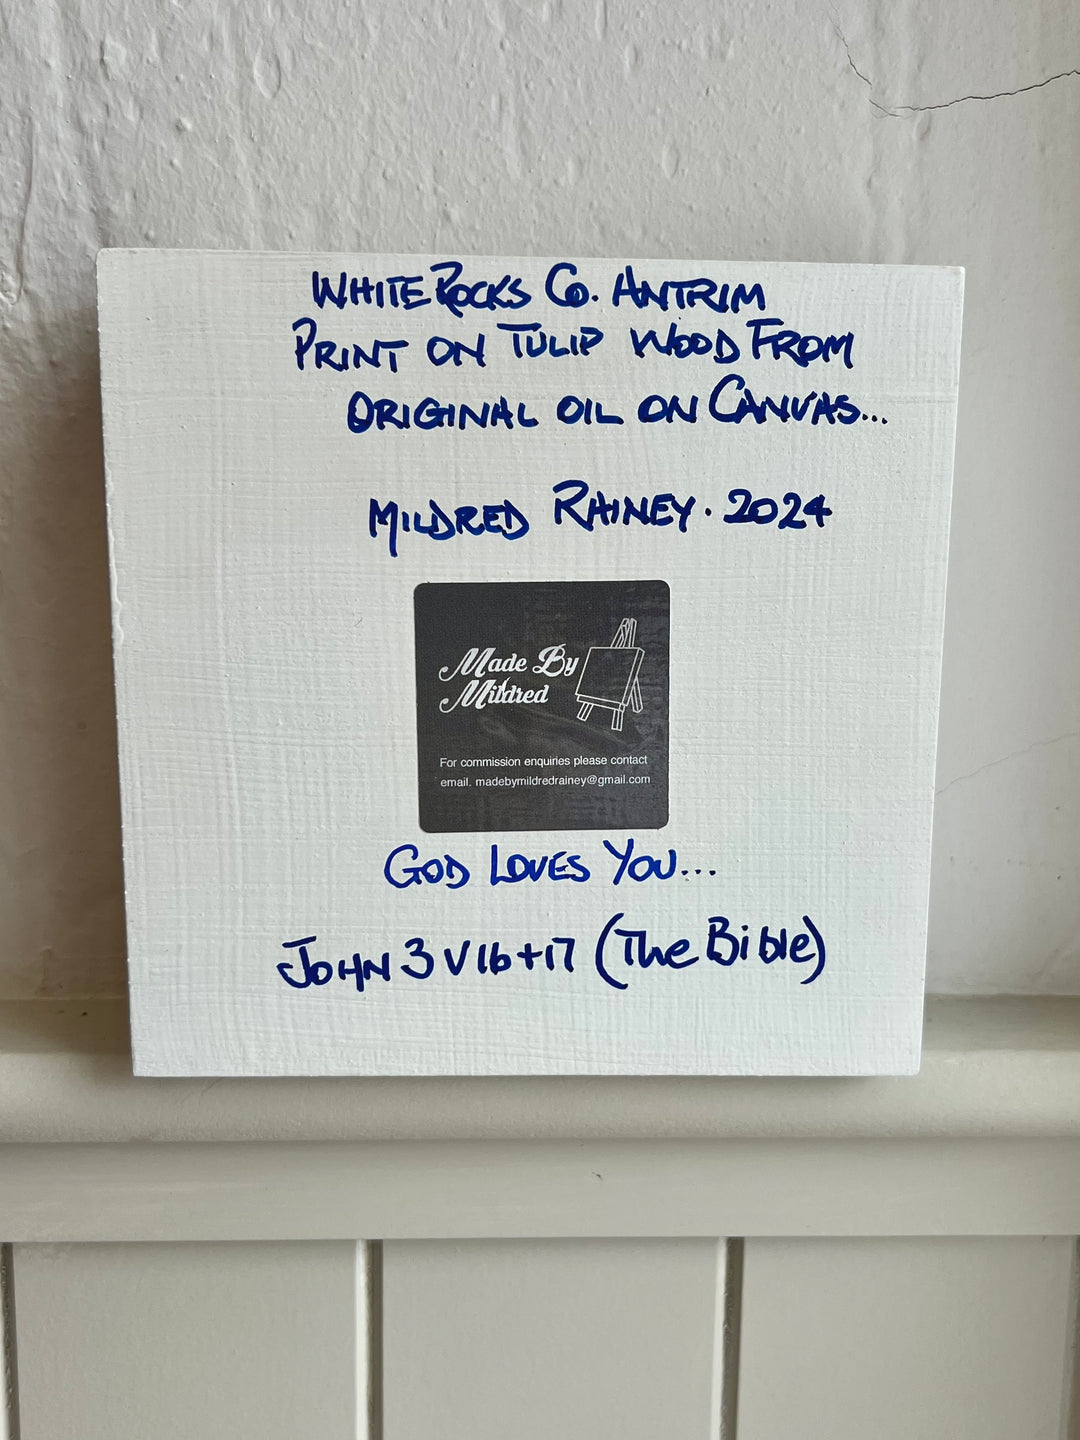 WHITE ROCKS CO. ANTRIM
PRINT ON TULIP WOOD FROM
ORIGINAL OIL ON CANVAS...
MILDRED RAINEY. 2024
Made By
Mildred
For commission enquiries please contact
email. madebymildredrainey@gmail.com
GOD LOVES YOU...
JOHN 3 V 16+17 (The Bible)